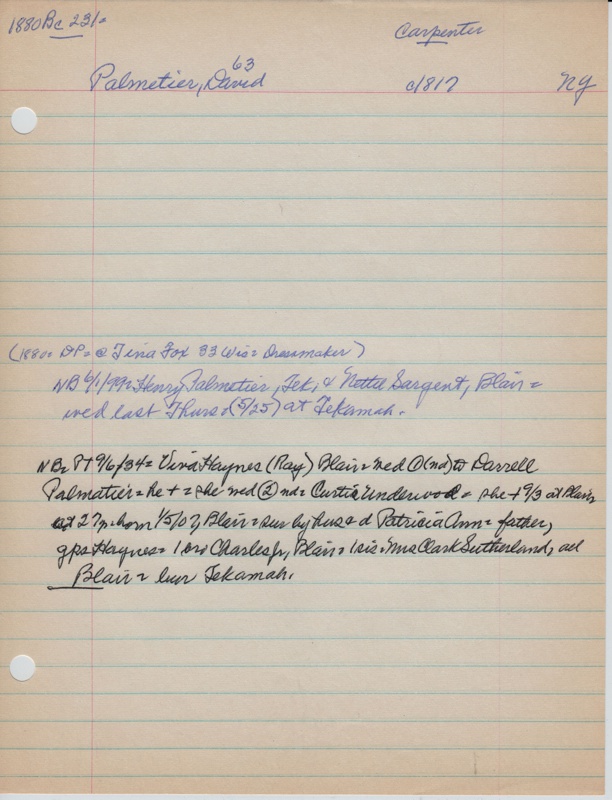 1880 Bc 231=
Carpenter
Palmetier, David 63 c1817 NY
(1880= DP= @ Tina Fox 33 Wis= Dressmaker)
NB 6/1/99= Henry Palmetier, Tek, & Nettie Sargent, Blair =
wed last Thurs= (5/25) at Tekamah.
NB= Pt 9/6/34= Vina Haynes (Ray) Blair= wed ① (nd) to Darrell
Palmatier= he + = she wed ② nd= Curtis Underwood = she + 9/3 at Blair
at 27= born 1/5/07 Blair= sur by hus & d Patricia Ann= father,
gps Haynes= 1 bro Charles Jr, Blair= 1 sis= Mrs Clark Sutherland, all
Blair= bur Tekamah.